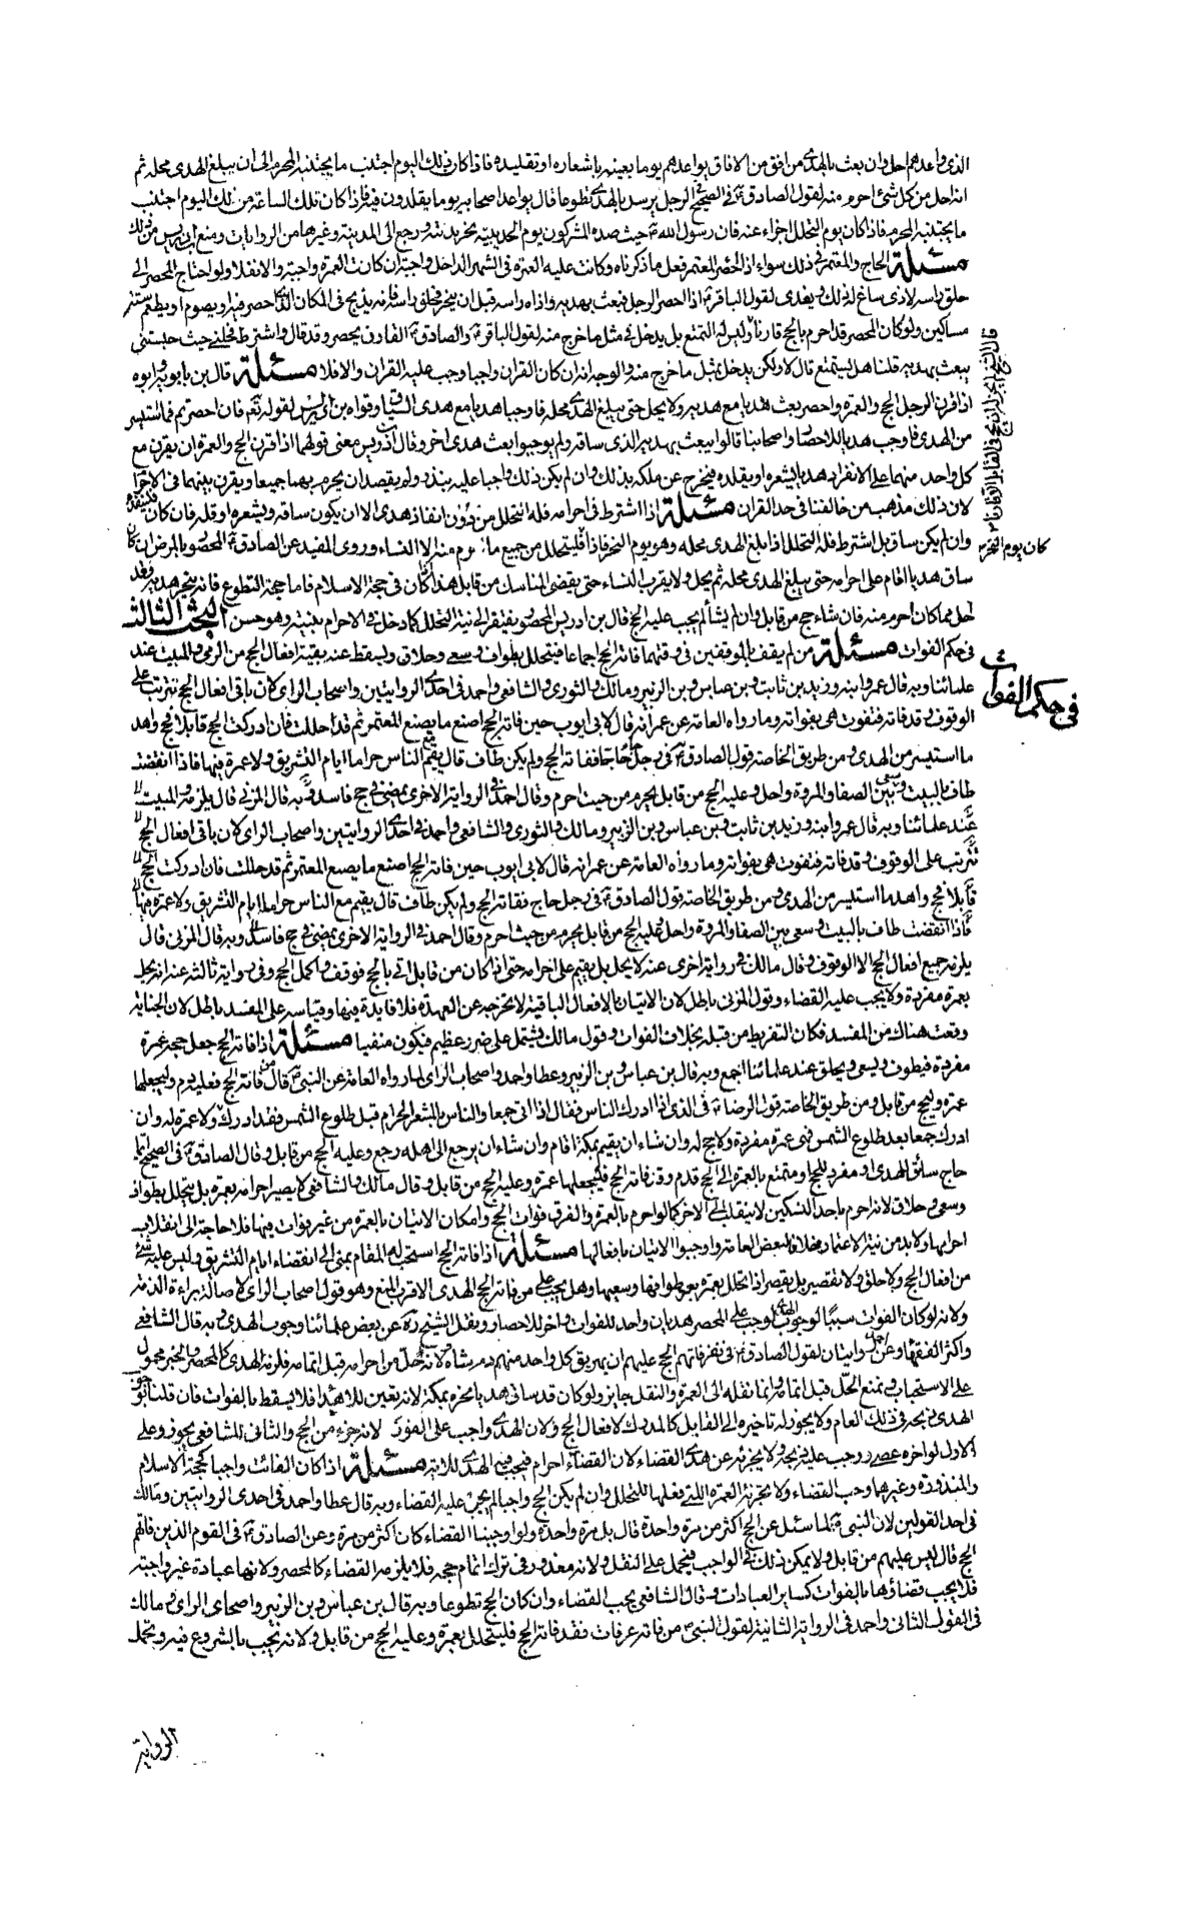 الذى واعدهم احل وان بعث بالهدى من افق من الافاق يواعدهم يوما بعينه باشعاره او تقليده فاذا كان ذلك اليوم اجتنب ما يجتنبه المحرم الى ان يبلغ الهدى محله ثم
انه احل من كل شئ احرم منه لقول الصادق ع فى الصحيح فى الرجل يرسل بالهدى تطوعا قال يواعد اصحابه يوما يقلدون فيه فاذا كان تلك الساعة من ذلك اليوم اجتنب
ما يجتنبه المحرم فاذا كان يوم التحلل اجزاء عنه فان رسول الله ص حيث صده المشركون يوم الحديبية نحر بدنته ورجع الى المدينة وغيرها من الروايات ومنع ابن ادريس من ذلك
مسئلة الحاج والمعتمر فى ذلك سواء اذا احصر المعتمر فعل ما ذكرناه وكانت عليه العمرة فى الشهر الداخل واجبة ان كانت العمرة واجبة والا نفلا ولو احتاج المحصر الى
حلق راسه لاذى ساغ له ذلك ويفدى لقول الباقر ع اذا احصر الرجل فبعث بهديه واذاه راسه قبل ان ينحر فحلق راسه فانه يذبح فى المكان الذى احصر فيه او يصوم او يطعم ستة
مساكين ولو كان المحصر قد احرم بالحج قارنا وليس له التمتع بل يدخل فى مثل ما خرج منه لقول الباقر ع والصادق ع القارن يحصر وقد قال واشترط فحلنى حيث حبستنى
يبعث بهديه قلنا هل يتمتع قال لا ولكن يدخل بمثل ما خرج منه والوجه انه ان كان القران واجبا وجب عليه القران والا فلا مسئلة قال بن بابويه وابوه
اذا قرن الرجل الحج والعمرة واحصر بعث هديا مع هديه ولا يحل حتى يبلغ الهدى محله فاوجبا هديا مع هدى السياق وقواه بن ادريس لقوله تع فان احصرتم فما استيسر
من الهدى فاوجب هديا للاحصار واصحابنا قالوا يبعث بهديه الذى ساقه ولم يوجبوا بعث هدى اخر وقال بن ادريس معنى قولهما اذا قرن الحج والعمرة ان يقرن مع
كل واحد منهما على الانفراد هديا يشعره او يقلده فيخرج عن ملكه بذلك وان لم يكن ذلك واجبا عليه بنذر ولم يقصد ان يحرم بهما جميعا ويقرن بينهما فى الاحرام
لان ذلك مذهب من خالفنا فى حد القران مسئلة اذا اشترط فى احرامه فله التحلل من دون انفاذ هدى الا ان يكون ساقه ويشعره او قلد فان كان فلينفذه
وان لم يكن ساق بل اشترط فله التحلل اذا بلغ الهدى محله وهو يوم النحر فاذا فليتحلل من جميع ما احرم منه الا النساء وروى المفيد عن الصادق ع المحصور بالمرض ان كان
ساق هديا اقام على احرامه حتى يبلغ الهدى محله ثم يحل ولا يقرب النساء حتى يقضى المناسك من قابل هذا اذا كان فى حجة الاسلام فاما حجة التطوع فانه ينحر هديه وقد
احل مما كان احرم منه فان شاء حج من قابل وان لم يشأ لم يجب عليه الحج قال بن ادريس المحصور يفتقر الى نية التحلل كما دخل فى الاحرام بنية وهو حسن البحث الثالث
فى حكم الفوات مسئلة من لم يقف بالموقفين فى وقتهما فاته الحج اجماعا فيتحلل بطواف وسعى وحلاق ويسقط عنه بقية افعال الحج من الرمى والمبيت عند
علمائنا وبه قال عمر وابنه وزيد بن ثابت وبن عباس وبن الزبير ومالك والثورى والشافعى واحمد فى احدى الروايتين واصحاب الراى لان باقى افعال الحج تترتب على
الوقوف وقد فاته فتفوت هى بفواته وما رواه العامة عن عمر انه قال لابى ايوب حين فاته الحج اصنع ما يصنع المعتمر ثم قد احللت فان ادركت الحج قابلا فحج واهد
ما استيسر من الهدى ومن طريق الخاصة قول الصادق ع فى رجل جاء حاجا ففاته الحج ولم يكن طاف قال يقيم مع الناس حراما ايام التشريق ولا عمرة فيها فاذا انقضت
طاف بالبيت وسعى بين الصفا والمروة واحل وعليه الحج من قابل يحرم من حيث احرم وقال احمد فى الرواية الاخرى يمضى فى حج فاسد وبه قال المزنى قال يلزمه المبيت
عند علمائنا وبه قال عمر وابنه وزيد بن ثابت وبن عباس وبن الزبير ومالك والثورى والشافعى واحمد فى احدى الروايتين واصحاب الراى لان باقى افعال الحج
تترتب على الوقوف وقد فاته فتفوت هى بفواته وما رواه العامة عن عمر انه قال لابى ايوب حين فاته الحج اصنع ما يصنع المعتمر ثم قد حللت فان ادركت الحج
قابلا فحج واهد ما استيسر من الهدى ومن طريق الخاصة قول الصادق ع فى رجل حاج ففاته الحج ولم يكن طاف قال يقيم مع الناس حراما ايام التشريق ولا عمرة فيها
فاذا انقضت طاف بالبيت وسعى بين الصفا والمروة واحل وعليه الحج من قابل يحرم من حيث احرم وقال احمد فى الرواية الاخرى يمضى فى حج فاسد وبه قال المزنى قال
يلزمه جميع افعال الحج الا الوقوف وقال مالك فى رواية اخرى عنه لا يحل بل يقيم على احرامه حتى اذا كان من قابل اتى بالحج فوقف واكمل الحج وفى رواية ثالثة عنه انه يحل
بعمرة مفردة ولا يجب عليه القضاء وقول المزنى باطل لان الاتيان بالافعال الباقية لا يخرجه عن العهدة فلا فايدة فيها وقياسه على المفسد باطل لان الجناية
وقعت هناك من المفسد فكان التفريط من قبله بخلاف الفوات وقول مالك يشتمل على ضرر عظيم فيكون منفيا مسئلة اذا فاته الحج جعل حجه عمرة
مفردة فيطوف ويسعى ويحلق عند علمائنا اجمع وبه قال بن عباس وبن الزبير وعطا واحمد واصحاب الراى لما رواه العامة عن النبى ص قال من فاته الحج فعليه دم وليجعلها
عمرة وليحج من قابل ومن طريق الخاصة قول الرضا ع فى الذى اذا ادرك الناس فقال اذا اتى جمعا والناس بالمشعر الحرام قبل طلوع الشمس فقد ادرك ولا عمرة له وان
ادرك جمعا بعد طلوع الشمس فهى عمرة مفردة ولا حج له وان شاء ان يقيم بمكة اقام وان شاء ان يرجع الى اهله رجع وعليه الحج من قابل وقال الصادق ع فى الصحيح ايما
حاج سائق للهدى او مفرد للحج او متمتع بالعمرة الى الحج قدم وقد فاته الحج فليجعلها عمرة وعليه الحج من قابل وقال مالك والشافعى لا يصير احرامه بعمرة بل يتحلل بطواف
وسعى وحلاق لانه احرم باحد النسكين لا ينقلب الى الاخر كما لو احرم بالعمرة والفرق فوات الحج وامكان الاتيان بالعمرة من غير فوات فيها فلا حاجة الى انقلاب
احرامها ولابد من نية الاعتمار خلافا لبعض العامة واوجبوا الاتيان بافعالها مسئلة اذا فاته الحج استحب له المقام بمنى الى انقضاء ايام التشريق وليس عليه شئ
من افعال الحج ولا حلق ولا تقصير بل يقصر اذا تحلل بعمرة بعد طوافها وسعيها وهل يجب على من فاته الحج الهدى الاقرب المنع وهو قول اصحاب الراى لاصالة براءة الذمة
ولانه لو كان الفوات سببا لوجوب الهدى لوجب على المحصر هديان واحد للفوات واخر للاحصار ونقل الشيخ ره عن بعض علمائنا وجوب الهدى وبه قال الشافعى
واكثر الفقهاء وعن احمد روايتان لقول الصادق ع فى نفر فاتهم الحج عليهم ان يهريق كل واحد منهم دم شاة ولانه حل من احرامه قبل اتمامه فلزمه الهدى كالمحصر والخبر محمول
على الاستحباب ونمنع الحل قبل اتمامه وانما نقله الى العمرة والنقل جايز ولو كان قد ساق هديا نحره بمكة لانه تعين للاهداء فلا يسقط بالفوات فان قلنا بوجوب
الهدى ذبحه فى ذلك العام ولا يجوز له تاخيره الى القابل كالمدرك لافعال الحج ولان الهدى واجب على الفور لانه جزء من الحج والثانى للشافعى يجوز وعلى
الاول لو اخره عصى ووجب عليه ذبحه ولا يجزئه عن هدى القضاء لان القضاء احرام فيجب فيه الهدى للاية مسئلة اذا كان الفائت واجبا كحجة الاسلام
والمنذورة وغيرهما وجب القضاء ولا تجزئه العمرة التى فعلها للتحلل وان لم يكن الحج واجبا لم يجب عليه القضاء وبه قال عطا واحمد فى احدى الروايتين ومالك
فى احد القولين لان النبى ص لما سئل عن الحج اكثر من مرة واحدة قال بل مرة واحدة ولو اوجبنا القضاء كان اكثر من مرة وعن الصادق ع فى القوم الذين فاتهم
الحج قال ليس عليهم من قابل ولا يمكن ذلك فى الواجب فيحمل على النفل ولانه معذور فى ترك اتمام حجه فلا يلزمه القضاء كالمحصر ولانها عبادة غير واجبة
فلا يجب قضاؤها بالفوات كساير العبادات وقال الشافعى يجب القضاء وان كان الحج تطوعا وبه قال بن عباس وبن الزبير واصحاب الراى ومالك
فى القول الثانى واحمد فى الرواية الثانية لقول النبى ص من فاته عرفات فقد فاته الحج فليتحلل بعمرة وعليه الحج من قابل ولانه يجب بالشروع فيه وتحمل
كان يوم النحر
فى حكم الفوات
الرواية